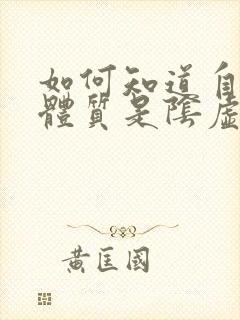 如何知道自
體質是陰虛
黃匡國